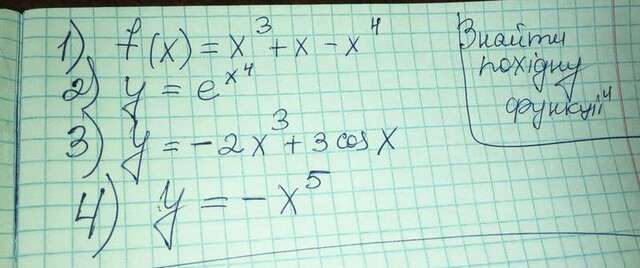 1) f(x) = x³ + x - x⁴
2) y = e^x⁴
3) y = -2x³ + 3 cos x
4) y = -x⁵
Знайти
похідну
функції⁴